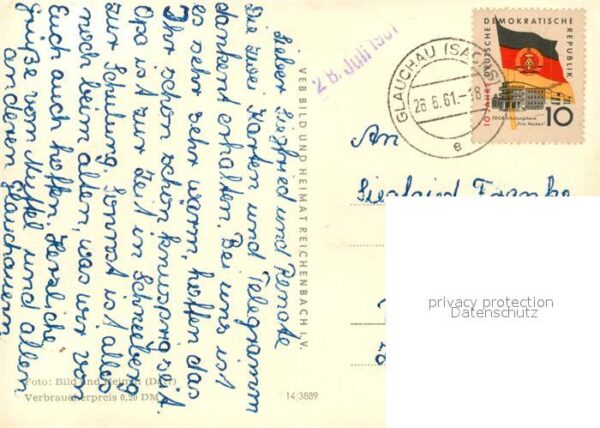 Lieber Siegfried und Renate
Die zwei Karten und Telegramm
dankend erhalten. Bei uns ist
es sehr sehr warm, hoffen das
Ihr schon schön knusprig seit.
Opa ist zur Zeit in Schneeberg
zur Schulung. Sonst ist alles
noch beim alten, was wir von
Euch auch hoffen. Herzliche
Grüße vom und allen
anderen Glauchauern
VEB BILD UND HEIMAT REICHENBACH I. V.
28. Juli 1961
GLAUCHAU (SACHS)
28.6.61.-18
e
10 JAHRE DEUTSCHE DEMOKRATISCHE REPUBLIK
FDGB-Erholungsheim
"Fritz Heckert"
10
An
Siegfried Franke
privacy protection
Datenschutz
Foto: Bild und Heimat
Verbraucherpreis 0,20 DM
14/3889